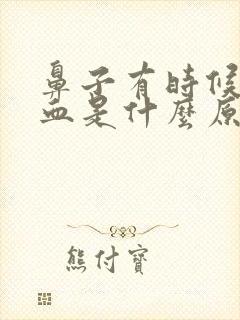 鼻子有時候
血是什麼原
熊付寶